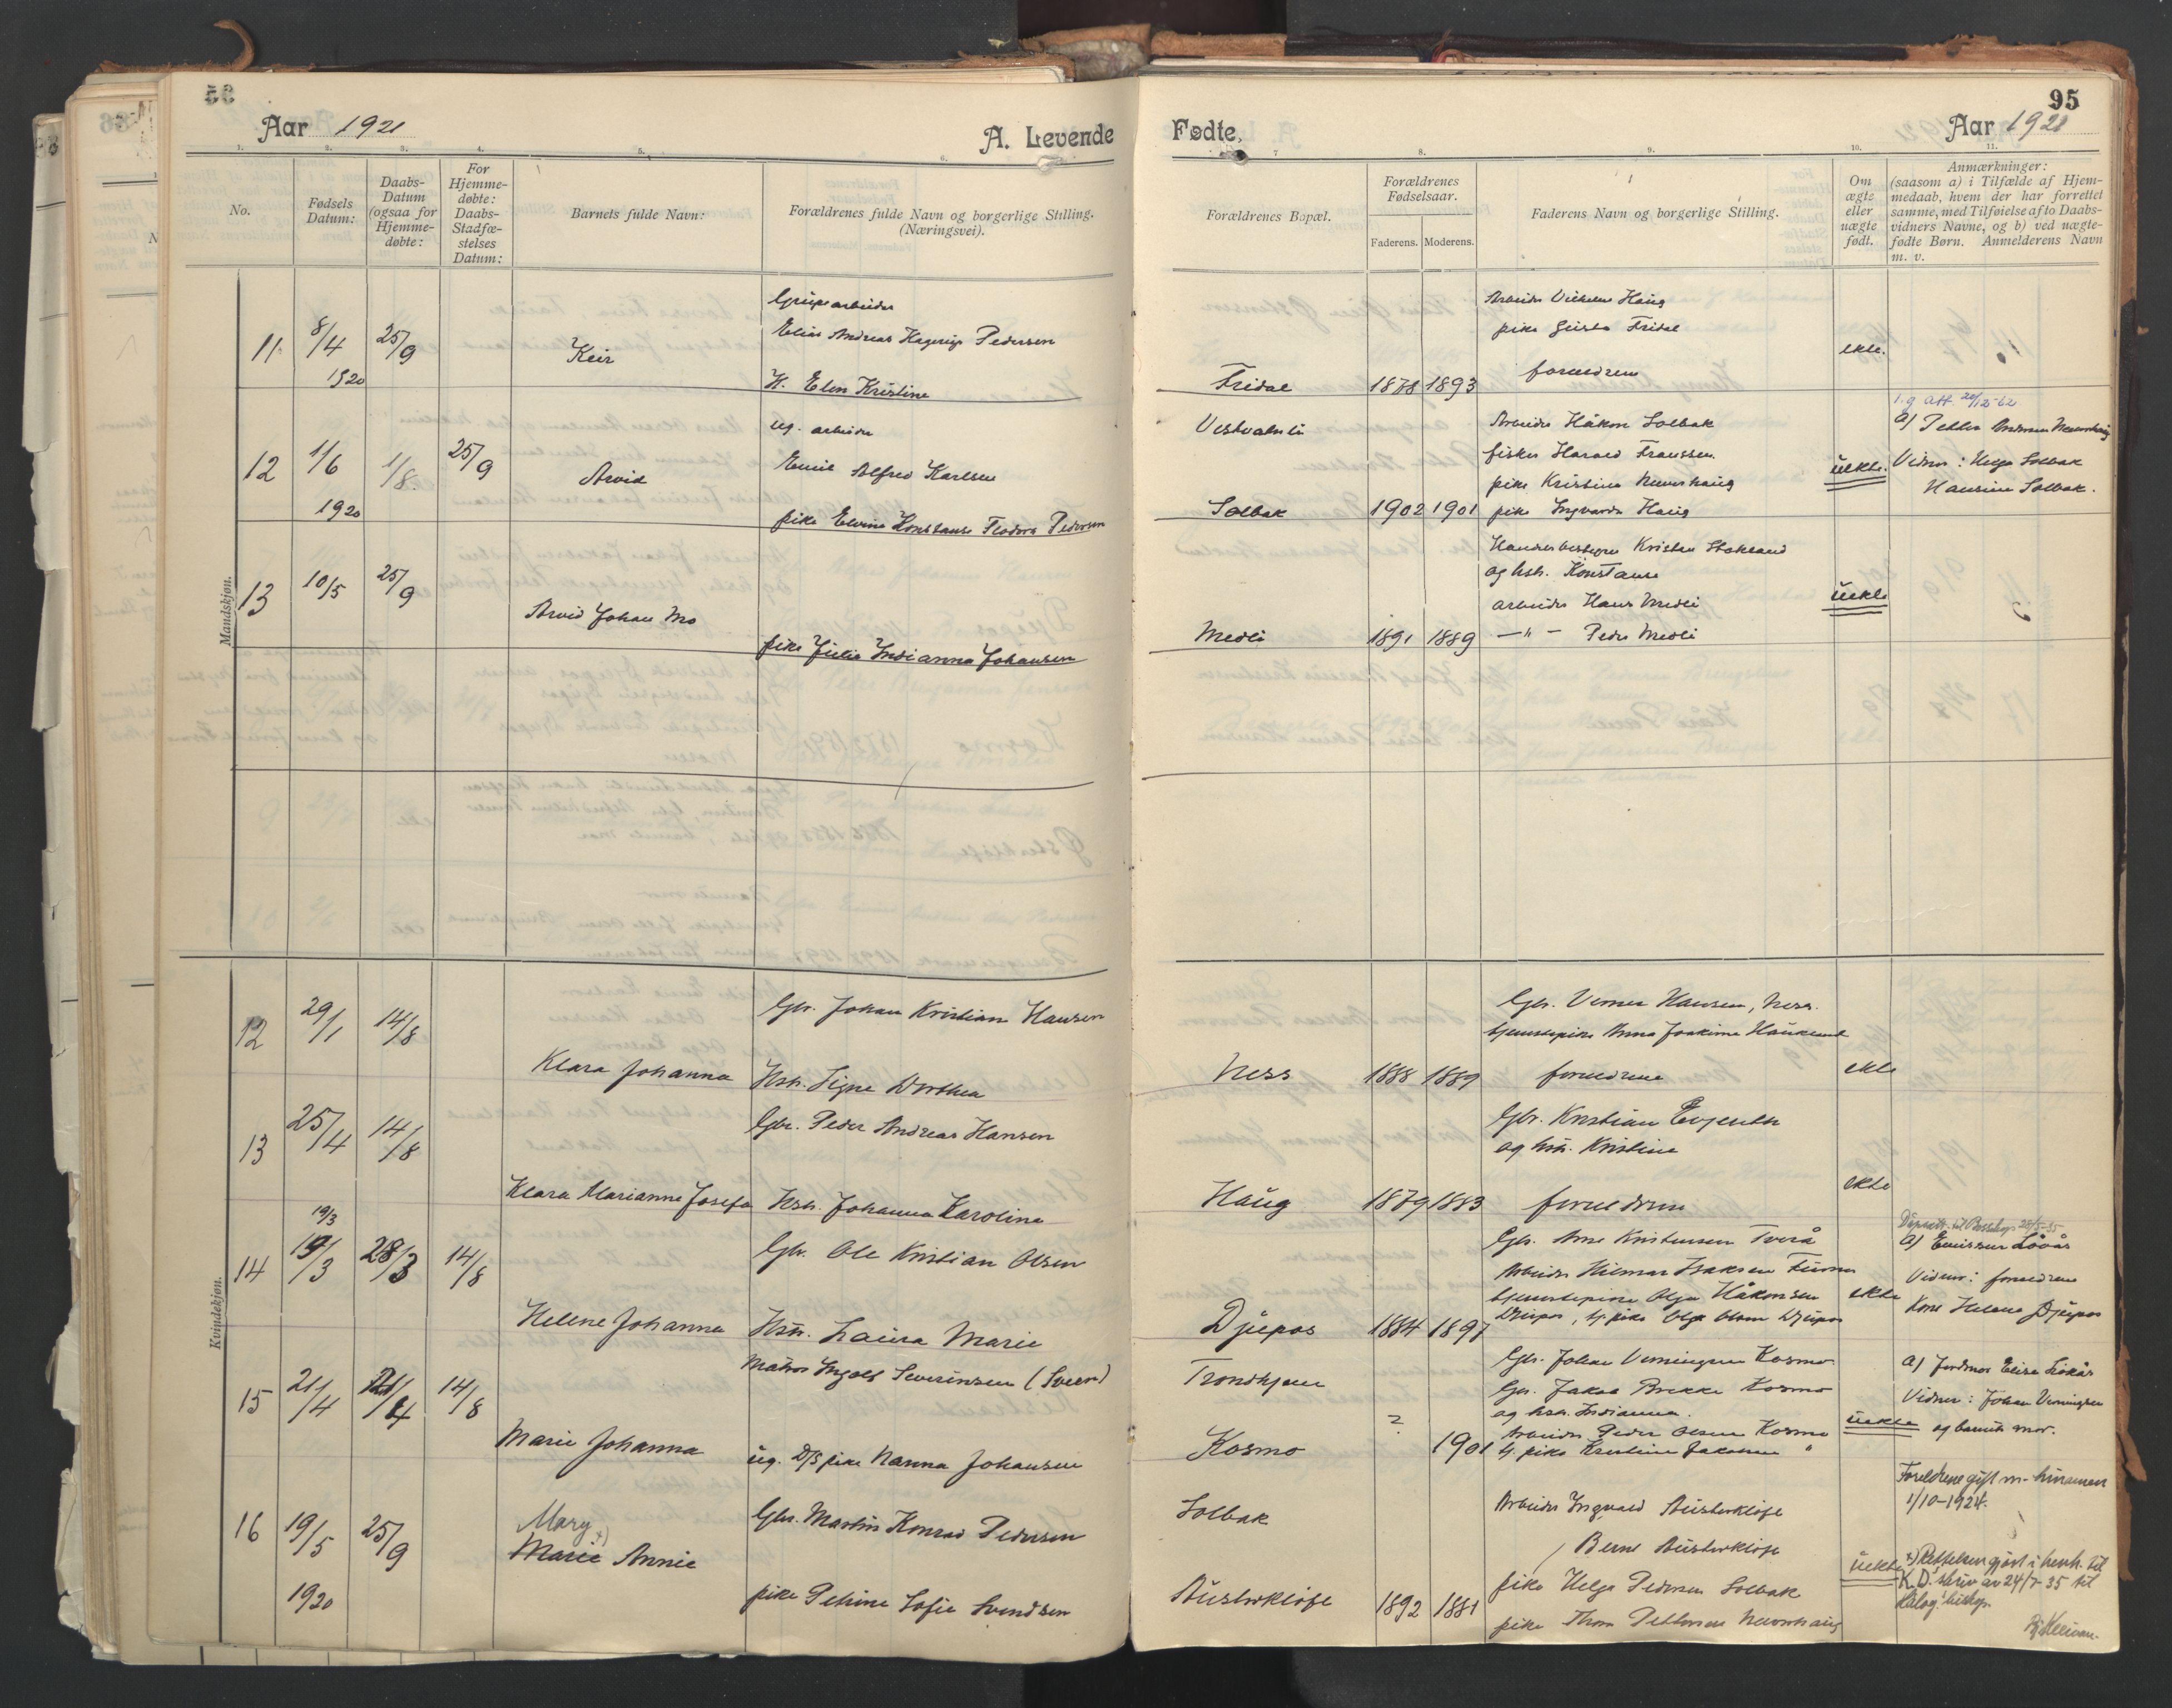 95
Aar 1921
A. Levende
Fødte,
Aar 1921
1. 2. 3. 4. 5. 6. 7 8. 9. 10. 11.
No.
Fødsels Datum:
Daabs-Datum (ogsaa for Hjemme-døbte:
For Hjemme-døbte: Daabs-Stadfæ-stelses Datum:
Barnets fulde Navn:
Forældrenes fulde Navn og borgerlige Stilling. (Næringsvei).
Forældrenes Bopæl.
Forældrenes Fødselsaar.
Faderens. Moderens.
Faderens Navn og borgerlige Stilling.
Om ægte eller uægte født.
Anmærkninger:
(saasom a) i Tilfælde af Hjem-
medaab, hvem der har forrettet
samme, med Tilføielse af to Daabs-
vidners Navne, og b) ved uægte-
fødte Børn. Anmelderens Navn
m. v.
Mandskjøn.
11 8/4 1920 25/9
Keir
Elias Andreas Pedersen
H. Elen Kristine
Fridal 1878 1893
Arbeider Vilhelm Haug
pike Fridal
foreldrene
ekte.
12 1/6 1920 1/8 25/9
Arvid
ug. arbeider
Emil Alfred Karlsen
pike Elvine Konstanse Teodora Pedersen
Solbak 1902 1901
Arbeider Håkon Solbak
fisker Harald Franssen
pike Kristine Neverhaug
pike Ingvarda Haug
uekte.
a) Petter Andersen Neverhaug
Vidner: Helga Solbak
Hansine Solbak.
13 10/5 25/9
Arvid Johan Mo
pike Julie Indianna Johansen
Medli 1891 1889
Handelsbestyrer Kristen Stokland
og hstr. Konstanse
arbeider Hans Medli
—"— Peder Medli
uekte
Kvindekjøn.
12 29/1 14/8
Klara Johanna
Gbr. Johan Kristian Hansen
Hstr. Signe Dorthea
Ness 1888 1889
Gbr. Verner Hansen, Ness.
tjenestepike Anna Joakime Hauklund
foreldrene
ekte
13 25/4 14/8
Klara Marianne Josefa
Gbr. Peder Andreas Hansen
Hstr. Johanna Karoline
Haug 1879 1883
Gbr. Kristian Evjenth
og hstr. Kristine
foreldrene
ekte
19/3
14 19/3 28/3 14/8
Helene Johanna
Gbr. Ole Kristian Olsen
Hstr. Laura Marie
Djupos 1884 1897
Gbr. Arne Kristensen Tverå
Arbeider Hilmar Isaksen
tjenestepike Olga Håkonsen
Djupos, tj. pike Olga Olsen Djupos
ekte
a) Løvås
Vidner: foreldrene
Kone Helene Djupos
15 21/4 21/4 14/8
Marie Johanna
Matros Ingolf Severinsen (Sveen)
ug. D/s pike Nanna Johansen
Trondhjem
Kosmo ? 1901
Gbr. Johan Verningsen Kosmo
Gbr. Jakob Brekke Kosmo
og hstr. Indianna.
Arbeider Peder Olsen Kosmo
tj. pike Kristine Jakobsen "
uekte
a) Jordmor Elise Liokås
Vidner: Johan Verningsen
og barnets mor.
16 19/5 1920 25/9
Mary x)
Marie Annie
Gbr. Martin Konrad Pedersen
pike Petrine Sofie Svendsen
Solbak
Austerkløft 1892 1881
Arbeider Ingvald Austerkløft
Bernt Austerkløft
pike Helga Pedersen Solbak
pike Thora Pettersen Neverhaug
uekte
Foreldrene gift m. hinannen
1/10-1924.
x) Rettelsen gjort i henh. til
K. D. skriv av 24/7-35 til
Hålog. biskop